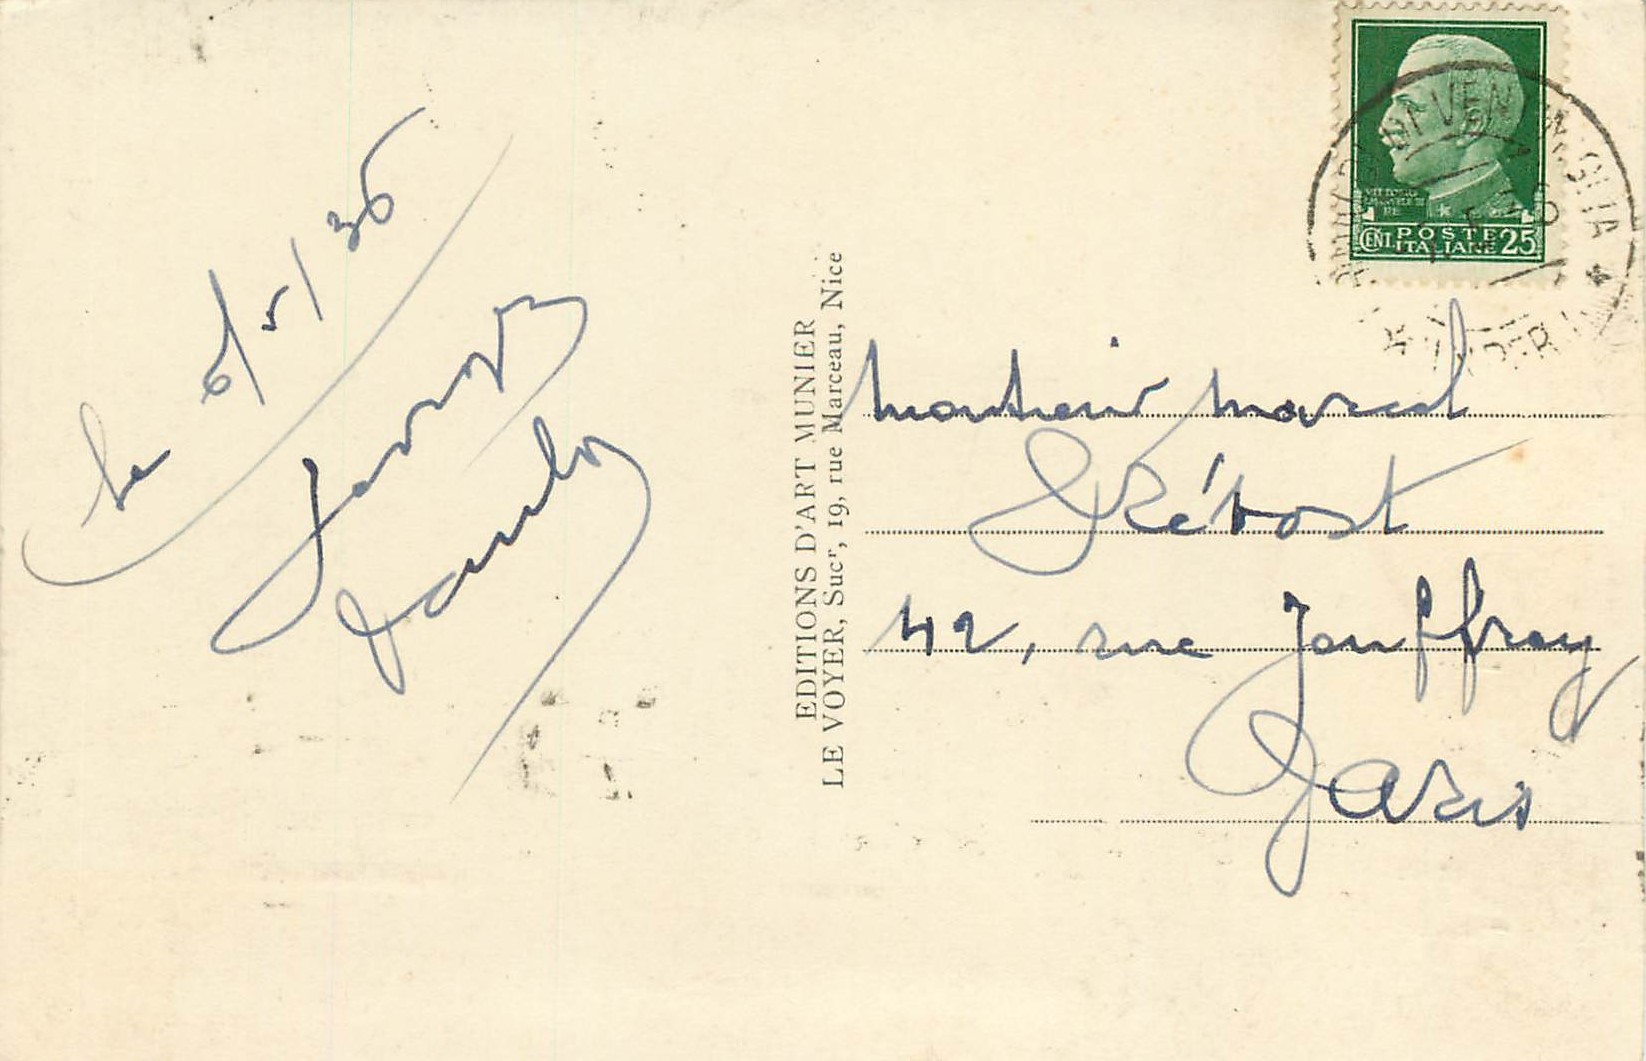 Le 6/5/36
EDITIONS D'ART MUNIER
LE VOYER, Sucʳ, 19, rue Marceau, Nice
VITTORIO
EMANVELE III
RE
CENT. POSTE ITALIANE 25
Monsieur Marcel
Prévost
42, rue Jouffroy
Paris